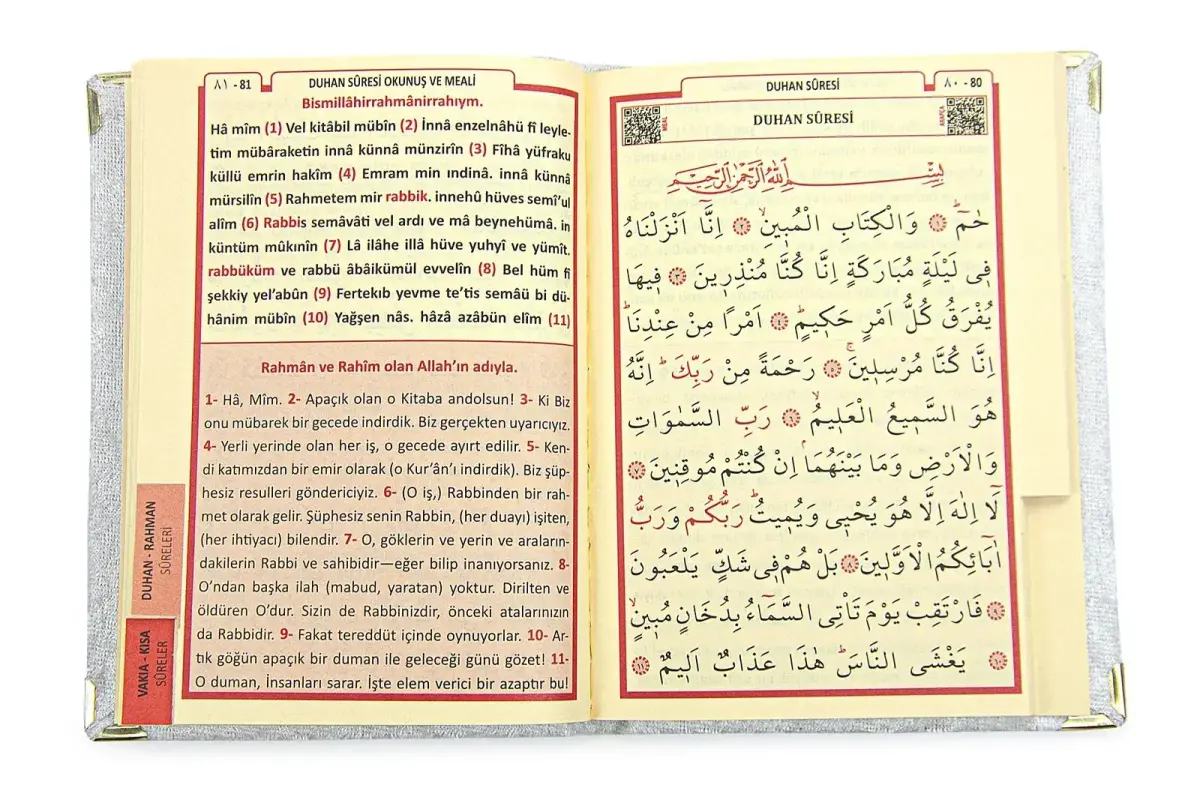 ٨١ - 81
DUHAN SÛRESİ OKUNUŞ VE MEALİ
Bismillâhirrahmânirrahıym.
Hâ mîm (1) Vel kitâbil mübîn (2) İnnâ enzelnâhü fî leyle-
tim mübâraketin innâ künnâ münzirîn (3) Fîhâ yüfraku
küllü emrin hakîm (4) Emram min ındinâ. innâ künnâ
mürsilîn (5) Rahmetem mir rabbik. innehû hüves semî'ul
alîm (6) Rabbis semâvâti vel ardı ve mâ beynehümâ. in
küntüm mûkınîn (7) Lâ ilâhe illâ hüve yuhyî ve yümît.
rabbüküm ve rabbü âbâikümül evvelîn (8) Bel hüm fî
şekkiy yel'abûn (9) Fertekıb yevme te'tis semâü bi dü-
hânim mübîn (10) Yağşen nâs. hâzâ azâbün elîm (11)
Rahmân ve Rahîm olan Allah'ın adıyla.
1- Hâ, Mîm. 2- Apaçık olan o Kitaba andolsun! 3- Ki Biz
onu mübarek bir gecede indirdik. Biz gerçekten uyarıcıyız.
4- Yerli yerinde olan her iş, o gecede ayırt edilir. 5- Ken-
di katımızdan bir emir olarak (o Kur'ân'ı indirdik). Biz şüp-
hesiz resulleri göndericiyiz. 6- (O iş,) Rabbinden bir rah-
met olarak gelir. Şüphesiz senin Rabbin, (her duayı) işiten,
(her ihtiyacı) bilendir. 7- O, göklerin ve yerin ve araların-
dakilerin Rabbi ve sahibidir—eğer bilip inanıyorsanız. 8-
O'ndan başka ilah (mabud, yaratan) yoktur. Dirilten ve
öldüren O'dur. Sizin de Rabbinizdir, önceki atalarınızın
da Rabbidir. 9- Fakat tereddüt içinde oynuyorlar. 10- Ar-
tık göğün apaçık bir duman ile geleceği günü gözet! 11-
O duman, İnsanları sarar. İşte elem verici bir azaptır bu!
DUHAN - RAHMAN
SÛRELERİ
VAKIA - KISA
SÛRELER
DUHAN SÛRESİ
٨٠ - 80
MEAL
DUHAN SÛRESİ
ARAPÇA
بِسْمِ اللّٰهِ الرَّحْمٰنِ الرَّحِيمِ
حٰمٓ ۚ ﴿١﴾ وَالْكِتَابِ الْمُبِينِۙ ﴿٢﴾ اِنَّٓا اَنْزَلْنَاهُ
فِي لَيْلَةٍ مُبَارَكَةٍ اِنَّا كُنَّا مُنْذِرِينَ ﴿٣﴾ فِيهَا
يُفْرَقُ كُلُّ اَمْرٍ حَكِيمٍۜ ﴿٤﴾ اَمْرًا مِنْ عِنْدِنَاۜ
اِنَّا كُنَّا مُرْسِلِينَۚ ﴿٥﴾ رَحْمَةً مِنْ رَبِّكَۜ اِنَّهُ
هُوَ السَّمِيعُ الْعَلِيمُۙ ﴿٦﴾ رَبِّ السَّمٰوَاتِ
وَالْاَرْضِ وَمَا بَيْنَهُمَاۢ اِنْ كُنْتُمْ مُوقِنِينَ ﴿٧﴾
لَٓا اِلٰهَ اِلَّا هُوَ يُحْيِي وَيُمِيتُۜ رَبُّكُمْ وَرَبُّ
اٰبَٓائِكُمُ الْاَوَّلِينَ ﴿٨﴾ بَلْ هُمْ فِي شَكٍّ يَلْعَبُونَ
﴿٩﴾ فَارْتَقِبْ يَوْمَ تَأْتِي السَّمَٓاءُ بِدُخَانٍ مُبِينٍۙ
﴿١٠﴾ يَغْشَى النَّاسَۜ هٰذَا عَذَابٌ اَلِيمٌ ﴿١١﴾